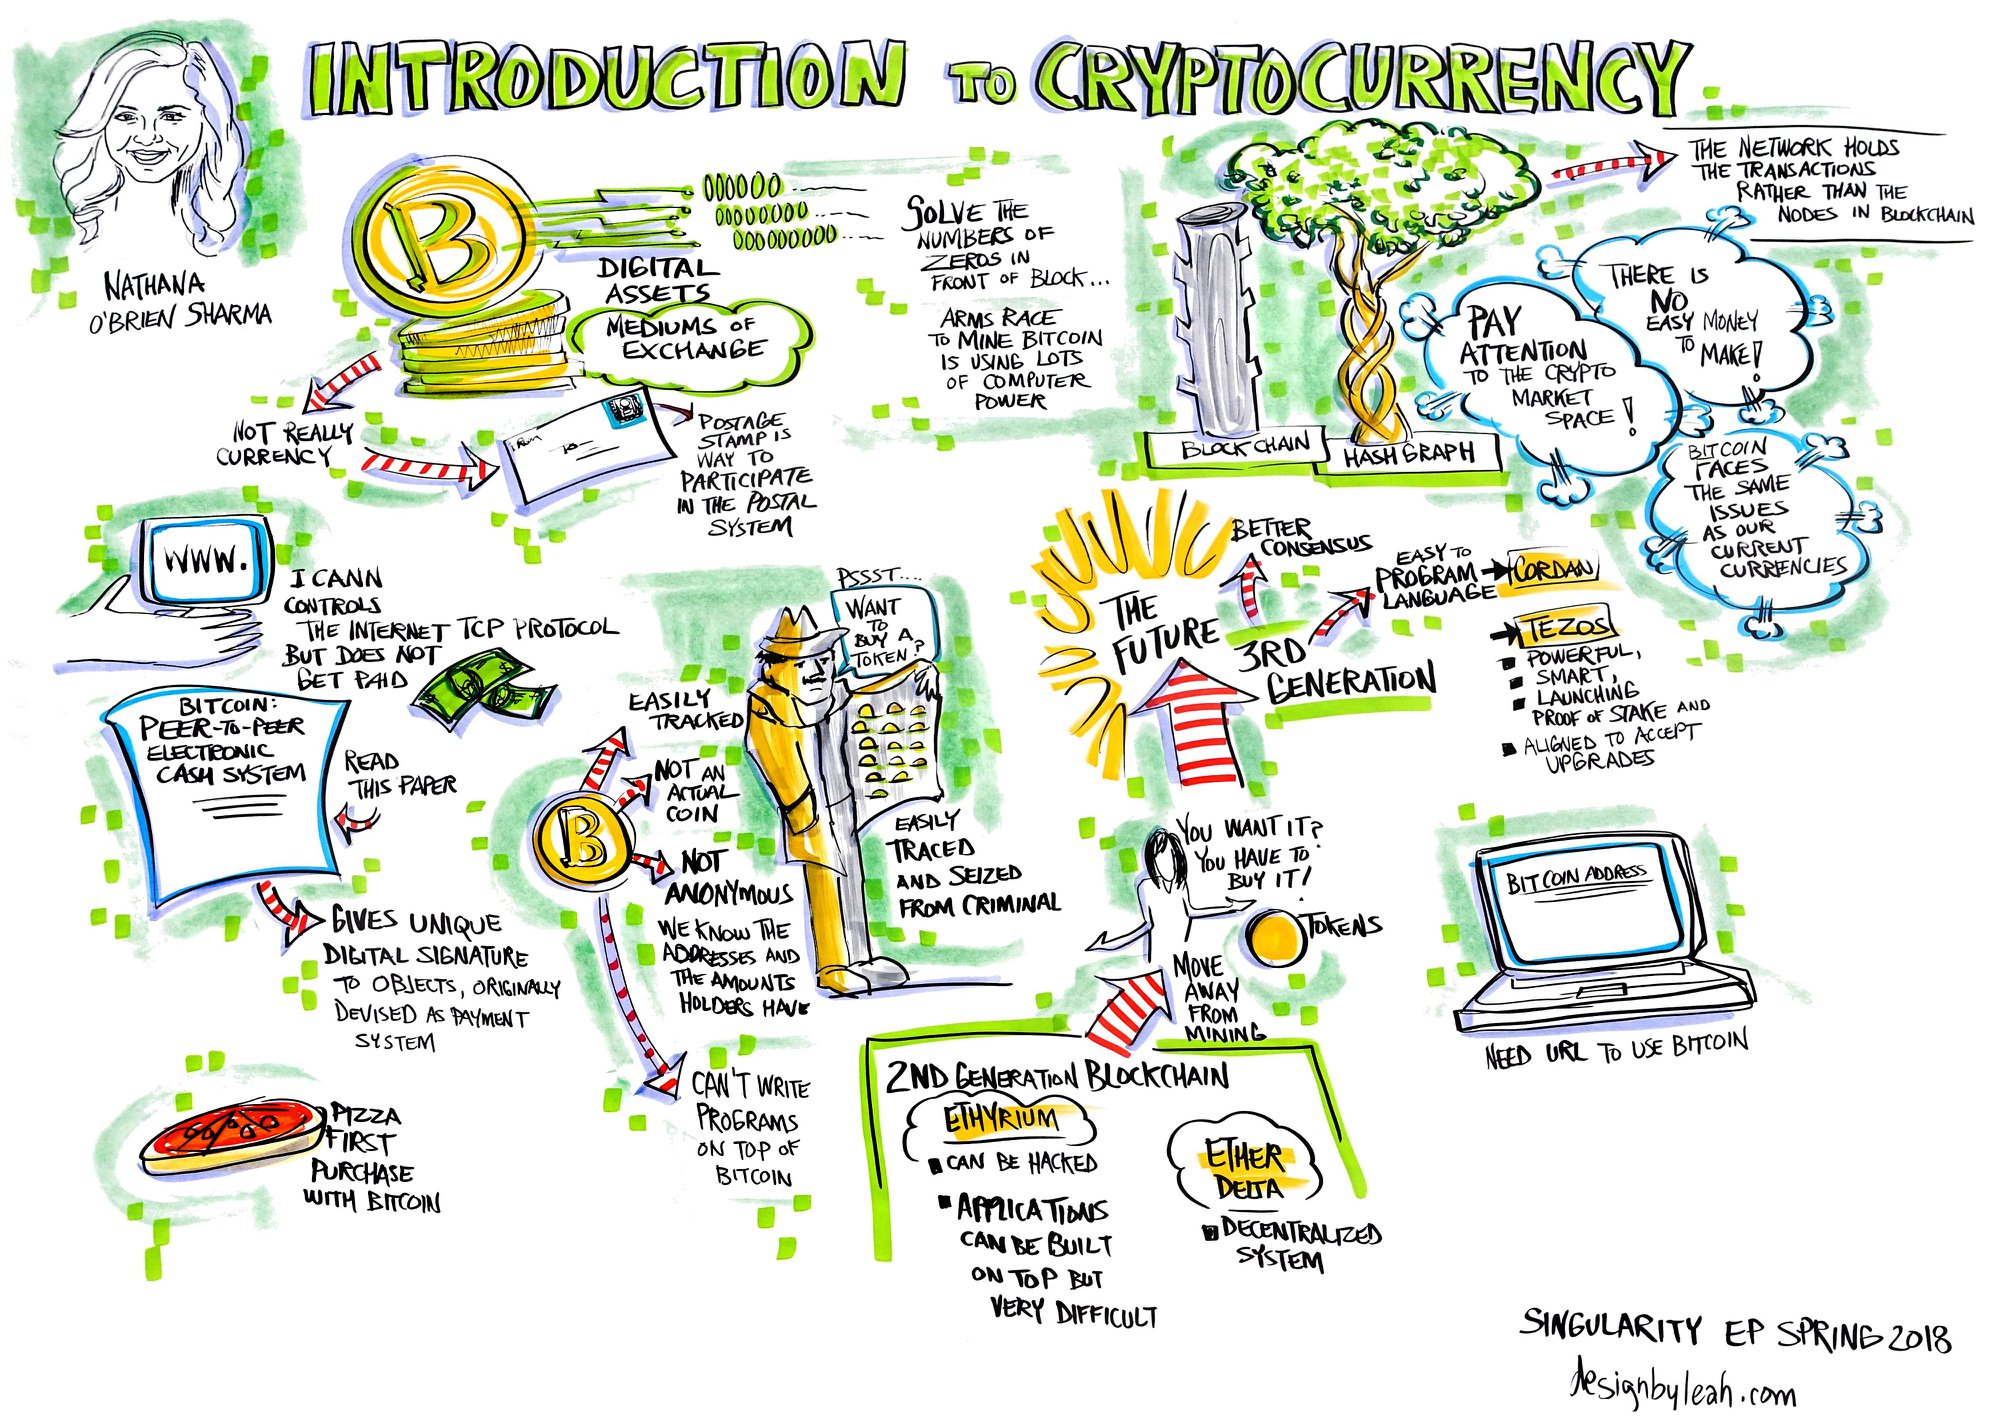 INTRODUCTION TO CRYPTOCURRENCY
NATHANA
O'BRIEN SHARMA
B
000000
00000000
000000000
DIGITAL
ASSETS
MEDIUMS OF
EXCHANGE
SOLVE THE
NUMBERS OF
ZEROS IN
FRONT OF BLOCK...
ARMS RACE
TO MINE BITCOIN
IS USING LOTS
OF COMPUTER
POWER
NOT REALLY
CURRENCY
POSTAGE
STAMP IS
WAY TO
PARTICIPATE
IN THE POSTAL
SYSTEM
BLOCKCHAIN
HASHGRAPH
THE NETWORK HOLDS
THE TRANSACTIONS
RATHER THAN THE
NODES IN BLOCKCHAIN
THERE IS
NO
EASY MONEY
TO
MAKE!
PAY
ATTENTION
TO THE CRYPTO
MARKET
SPACE!
BITCOIN
FACES
THE SAME
ISSUES
AS OUR
CURRENT
CURRENCIES
WWW.
I CANN
CONTROLS
THE INTERNET TCP PROTOCOL
BUT DOES NOT
GET PAID
BITCOIN:
PEER-TO-PEER
ELECTRONIC
CASH SYSTEM
READ
THIS PAPER
GIVES UNIQUE
DIGITAL SIGNATURE
TO OBJECTS, ORIGINALLY
DEVISED AS PAYMENT
SYSTEM
PIZZA
FIRST
PURCHASE
WITH BITCOIN
B
EASILY
TRACKED
NOT AN
ACTUAL
COIN
NOT
ANONYMOUS
WE KNOW THE
ADDRESSES AND
THE AMOUNTS
HOLDERS HAVE
CAN'T WRITE
PROGRAMS
ON TOP OF
BITCOIN
PSSST....
WANT
TO
BUY A
TOKEN?
EASILY
TRACED
AND SEIZED
FROM CRIMINAL
THE
FUTURE
BETTER
CONSENSUS
3RD
GENERATION
EASY TO
PROGRAM
LANGUAGE
CORDAN
TEZOS
POWERFUL,
SMART,
LAUNCHING
PROOF OF STAKE AND
ALIGNED TO ACCEPT
UPGRADES
YOU WANT IT?
YOU HAVE TO
BUY IT!
TOKENS
MOVE
AWAY
FROM
MINING
2ND GENERATION BLOCKCHAIN
ETHYRIUM
CAN BE HACKED
APPLICATIONS
CAN BE BUILT
ON TOP BUT
VERY DIFFICULT
ETHER
DELTA
DECENTRALIZED
SYSTEM
BITCOIN ADDRESS
NEED URL TO USE BITCOIN
SINGULARITY EP SPRING 2018
designbyleah.com